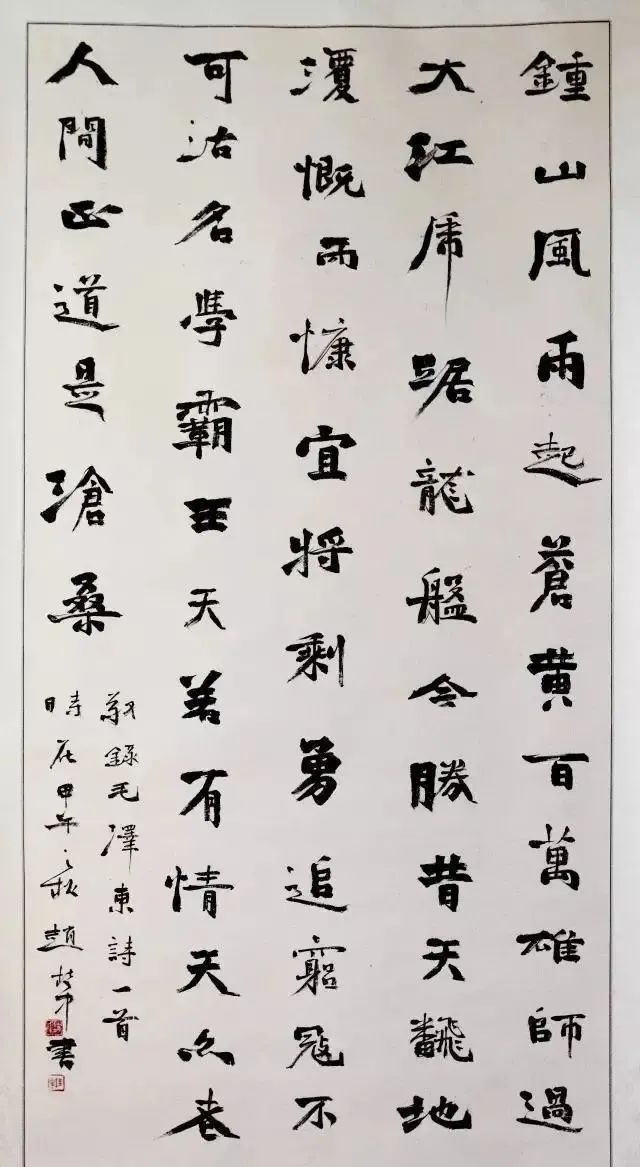 鍾山風雨起蒼黄百萬雄師過
大江虎踞龍盤今勝昔天飜地
覆慨而慷宜將剩勇追窮寇不
可沽名學霸王天若有情天亦老
人間正道是滄桑
敬錄毛澤東詩一首
時在甲午之秋趙書